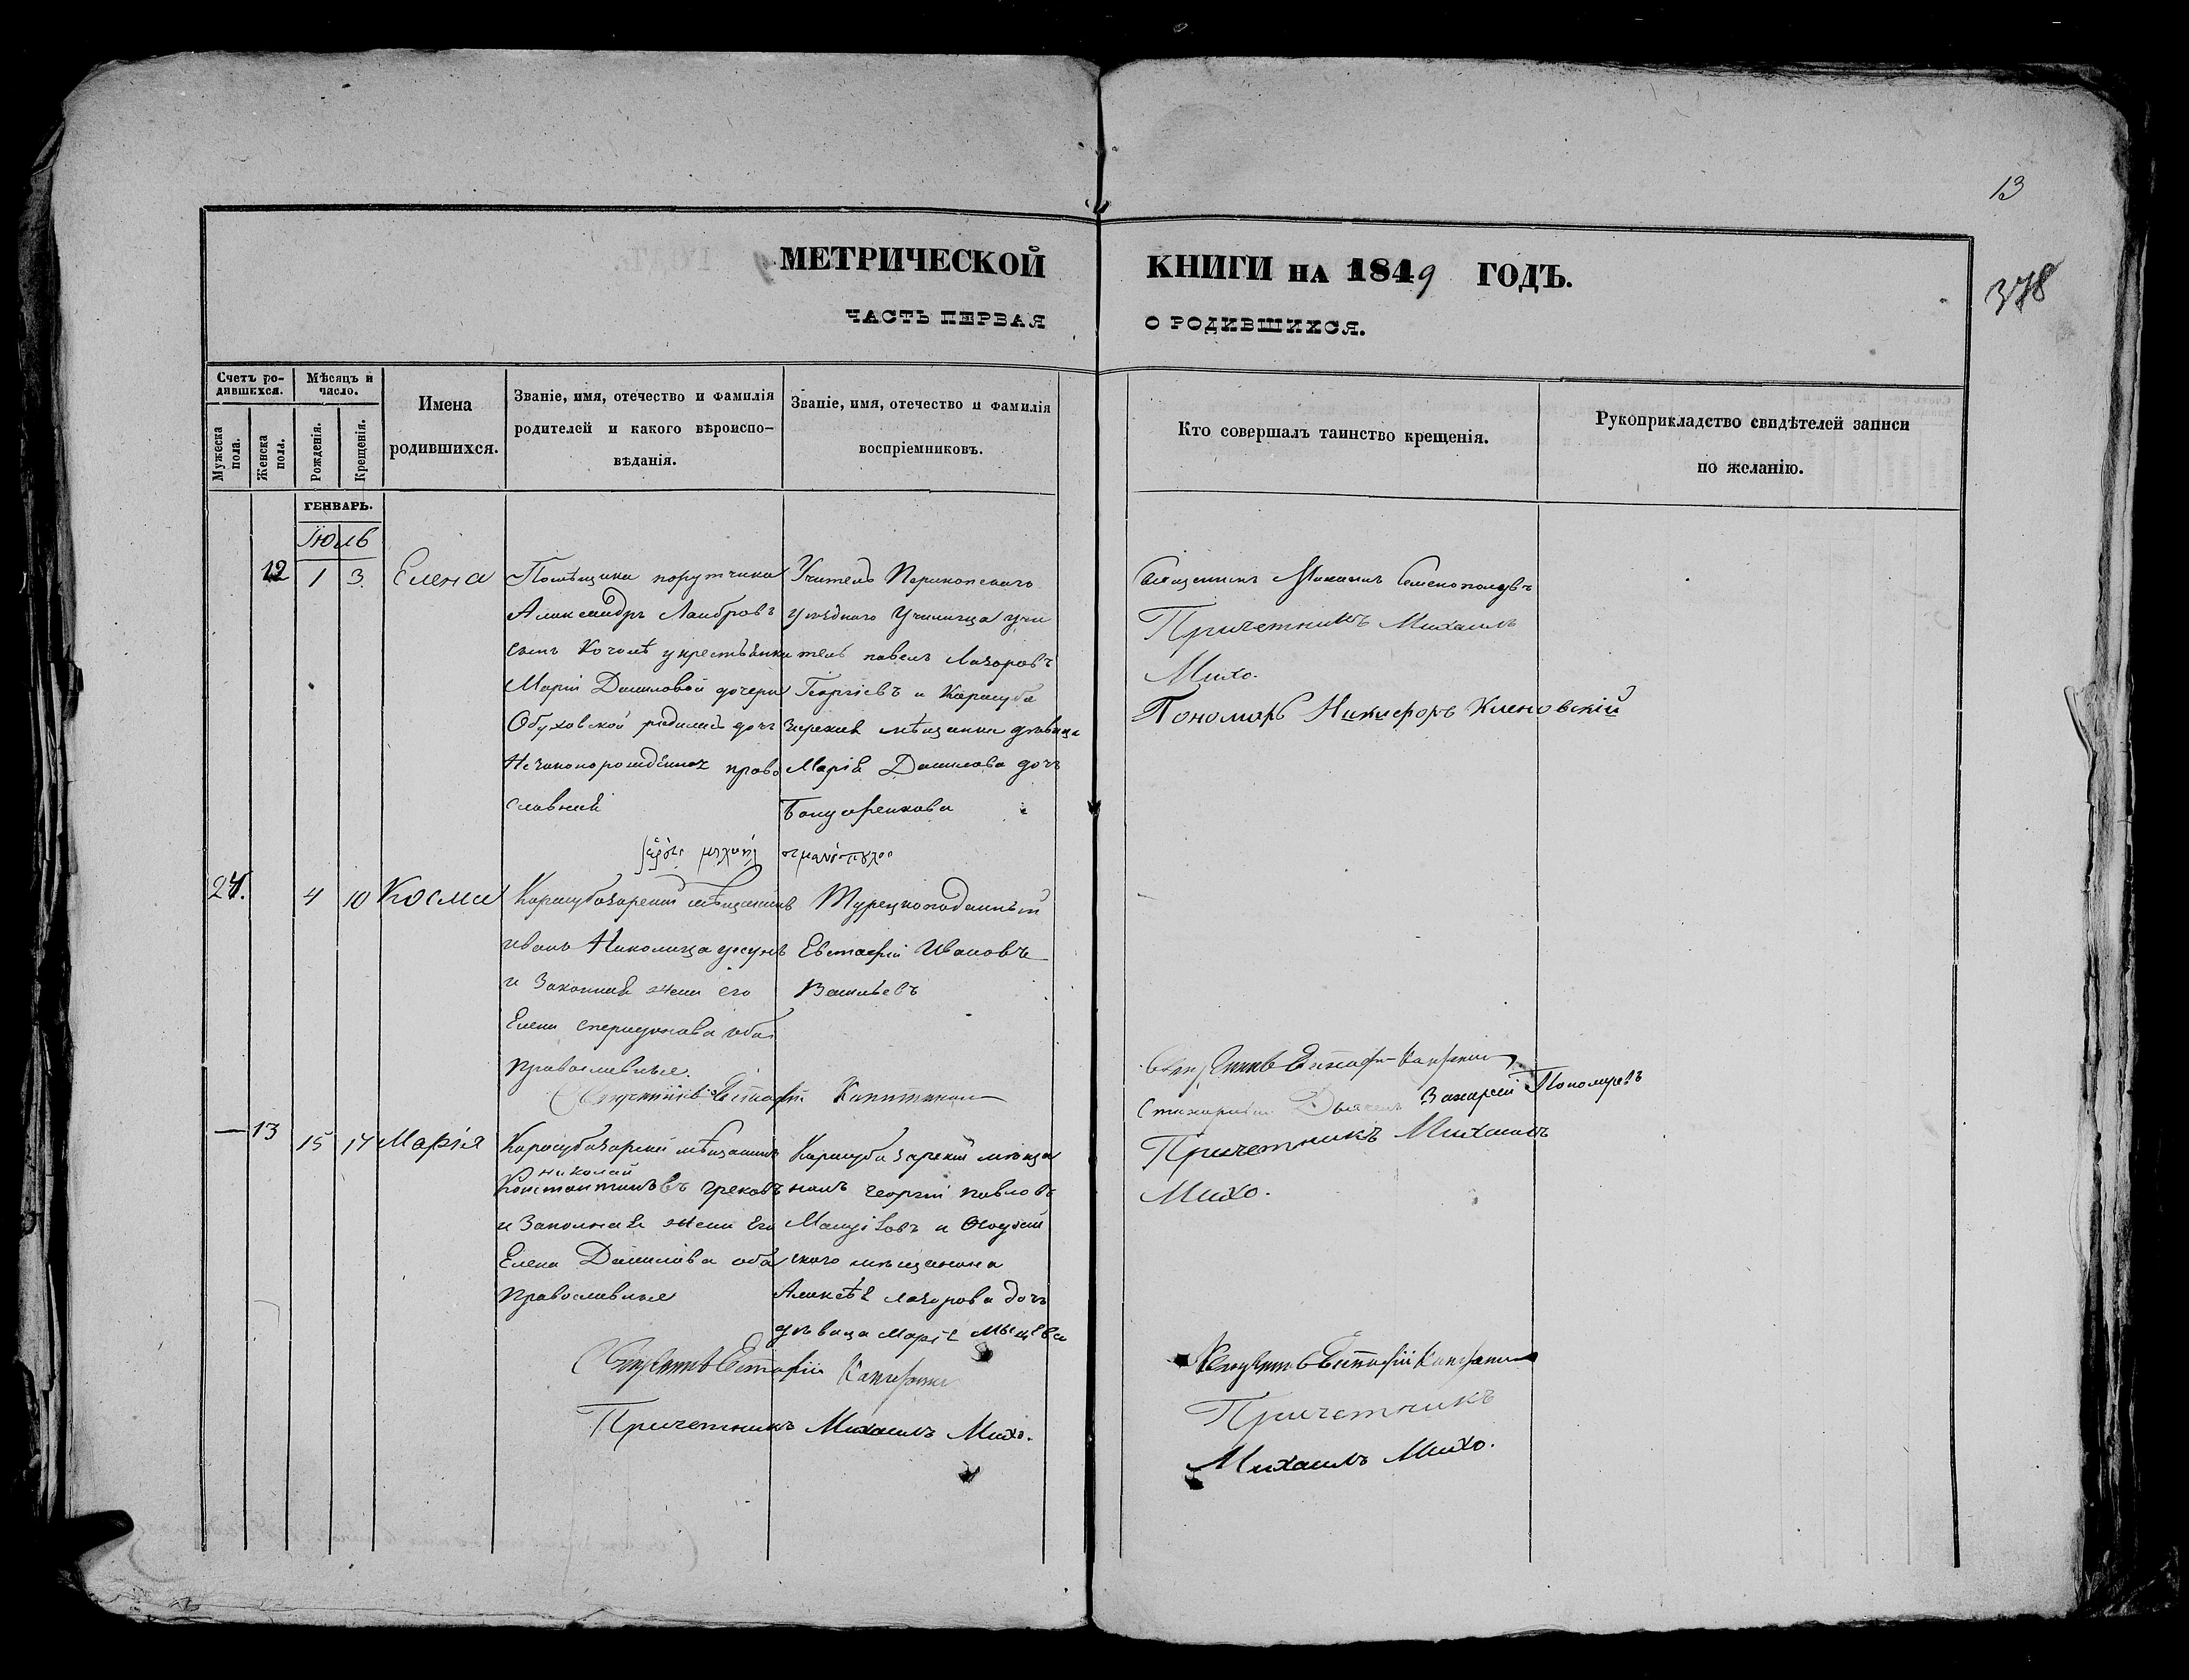 13
378
МЕТРИЧЕСКОЙ КНИГИ НА 1849 ГОДЪ.
ЧАСТЬ ПЕРВАЯ О РОДИВШИХСЯ.
Счетъ родившихся.
Мужеска пола.
Женска пола.
Мѣсяцъ и число.
Рожденія.
Крещенія.
Имена родившихся.
Званіе, имя, отечество и фамилія
родителей и какого вѣроиспо-
вѣданія.
Званіе, имя, отечество и фамилія
воспріемниковъ.
Кто совершалъ таинство крещенія.
Рукоприкладство свидѣтелей записи
по желанію.
ГЕНВАРЬ.
Іюль
12 1 3. Елена
Помѣщика порутчика
Александръ
сынъ
Маріи Даниловой дочери
Обуховской родилась дочь
Незаконорожденная право
славная
Учитель Перекопскаго
уѣзднаго Училища учи
тель павелъ Лазоровъ
Георгіевъ и Карасуба
зарская мѣщанка дѣвица
Марія Данилова дочь
Бондаренкова
Священникъ Михаилъ
Причетникъ Михаилъ
Михо.
Пономарь Никифоръ Кленовскій
24. 4 10 Косма
Карасубазарскій мѣщанинъ
иванъ Николица
и Законная жена его
Елена оба
православные.
Турецкоподанный
Евстафій Ивановъ
Васильевъ
Священникъ Евстафій
Священникъ Евстафій
Захарій Пономаревъ
Причетникъ Михаилъ
Михо.
— 13 15 17 Марія
Карасубазарскій мѣщанинъ
николай
Константиновъ грековъ
и Законная жена Его
Елена Данилова оба
православные
Карасубазарскій мѣща
нинъ георгій павловъ
скаго мѣщанина
Алексѣя лазорова дочь
дѣвица Марія
Священникъ Евстафій
Причетникъ Михаилъ Михо.
Священникъ Евстафій
Причетникъ
Михаилъ Михо.